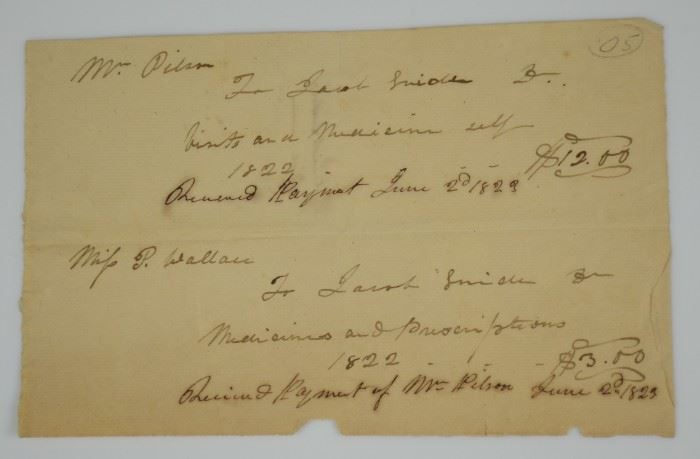 05
Mr. Pilson
To Jacob Snider Dr.
Visits and Medicine self
1822 $12.00
Received Payment June 2d 1823
Miss P. Wallace
To Jacob Snider Dr
Medicines and Prescriptions
1822 - - - $3.00
Received Payment of Mr Pilson June 2d. 1823